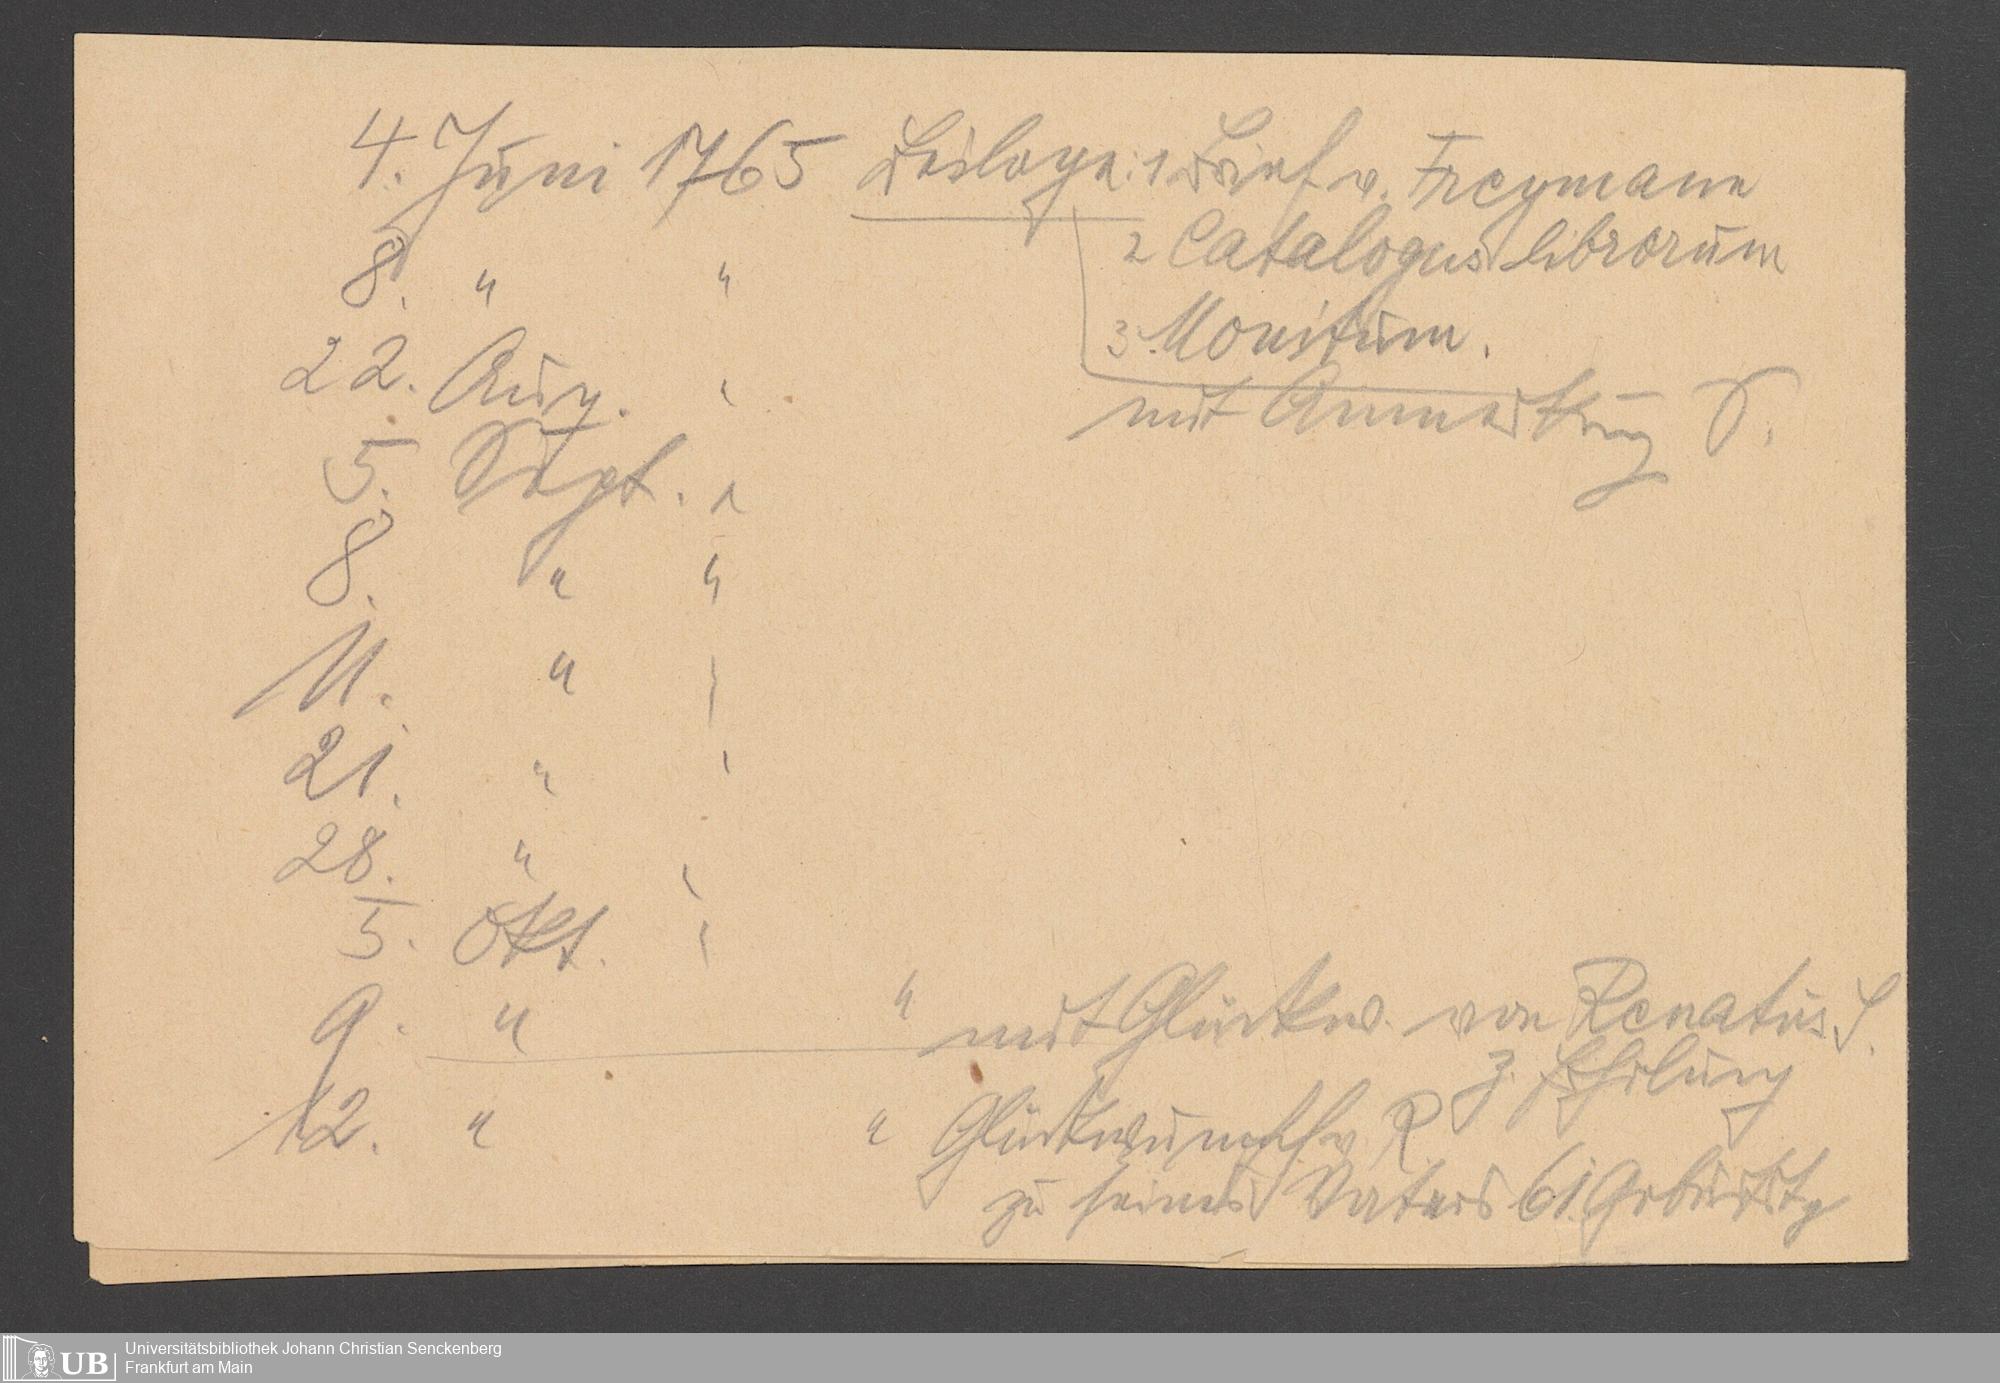 4. Juni 1765 Beilage: 1 Brief v. Freymann
2 Catalogus librorum
8. " "
3. Monitum.
22. Aug. "
mit Anmerkung S.
5. Sept. "
8. " "
11. " "
21. " "
28. " "
5. Okt. "
9. " " mit Glückw. von Renatus S.
z. Erholung
12. " " Glückwunsch v. R.
zu seines Vaters 61. Geburtstg
UB Universitätsbibliothek Johann Christian Senckenberg
Frankfurt am Main